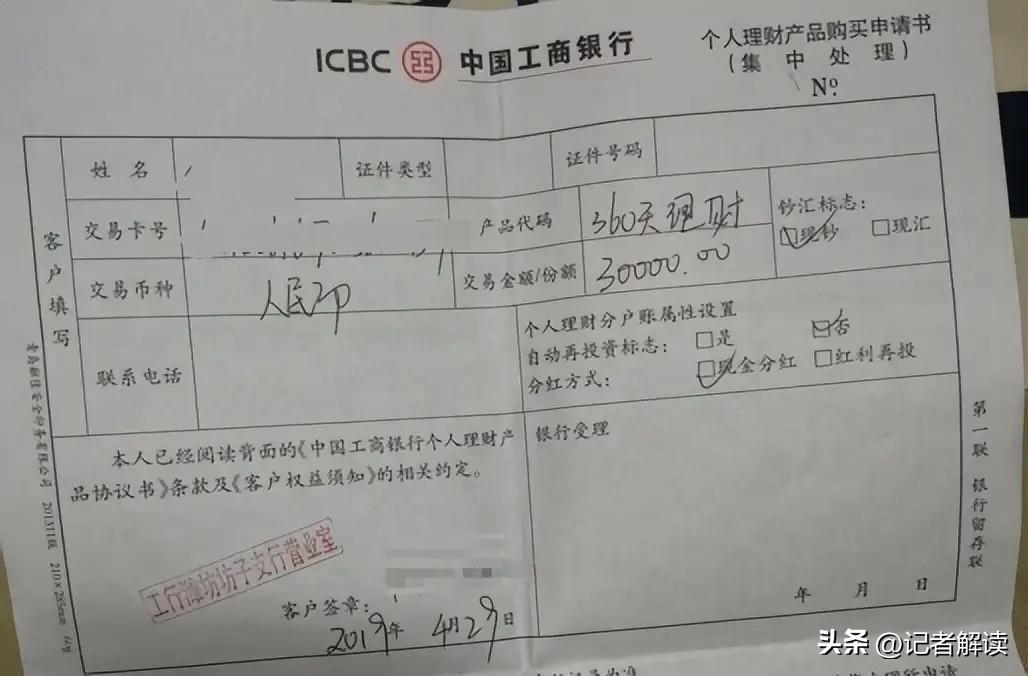 ICBC 中国工商银行
个人理财产品购买申请书
(集中处理)
Nº
客户填写
姓名
证件类型
证件号码
交易卡号
产品代码
360天理财
钞汇标志:
现钞
现汇
交易币种
人民印
交易金额/份额
30000.00
联系电话
个人理财分户账属性设置
自动再投资标志:
是
否
分红方式:
现金分红
红利再投
本人已经阅读背面的《中国工商银行个人理财产
品协议书》条款及《客户权益须知》的相关约定。
工行潍坊坊子支行营业室
客户签章:
2019年 4月29日
银行受理
年 月 日
第一联 银行留存联
201311版 210×285mm
头条 @记者解读